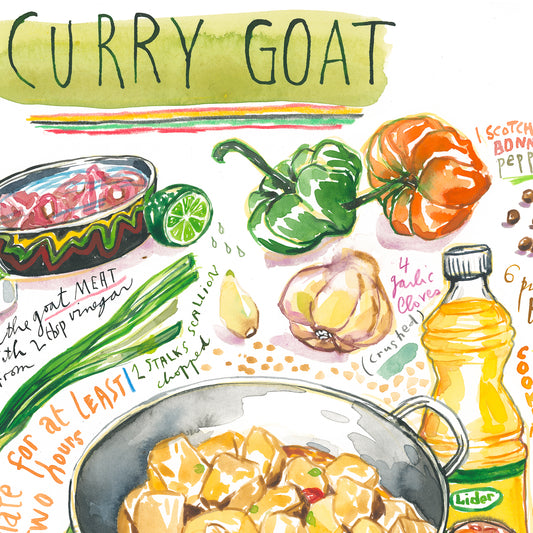 CURRY GOAT
1 SCOTCH
BONN
pepp
the goat MEAT
ith 2 tbsp vinegar
rom
2 STALKS SCALLION
chopped
4
garlic
cloves
(crushed)
6 p
COO
for at LEAST
two hours
Lider